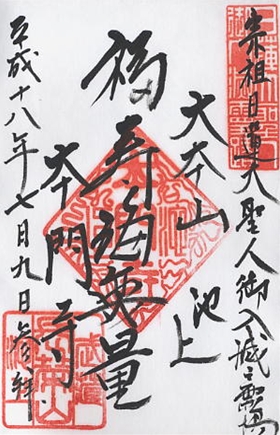 宗祖日蓮大聖人御入滅之霊場
大本山 池上
福寿海無量
本門寺
平成十八年七月九日参拝